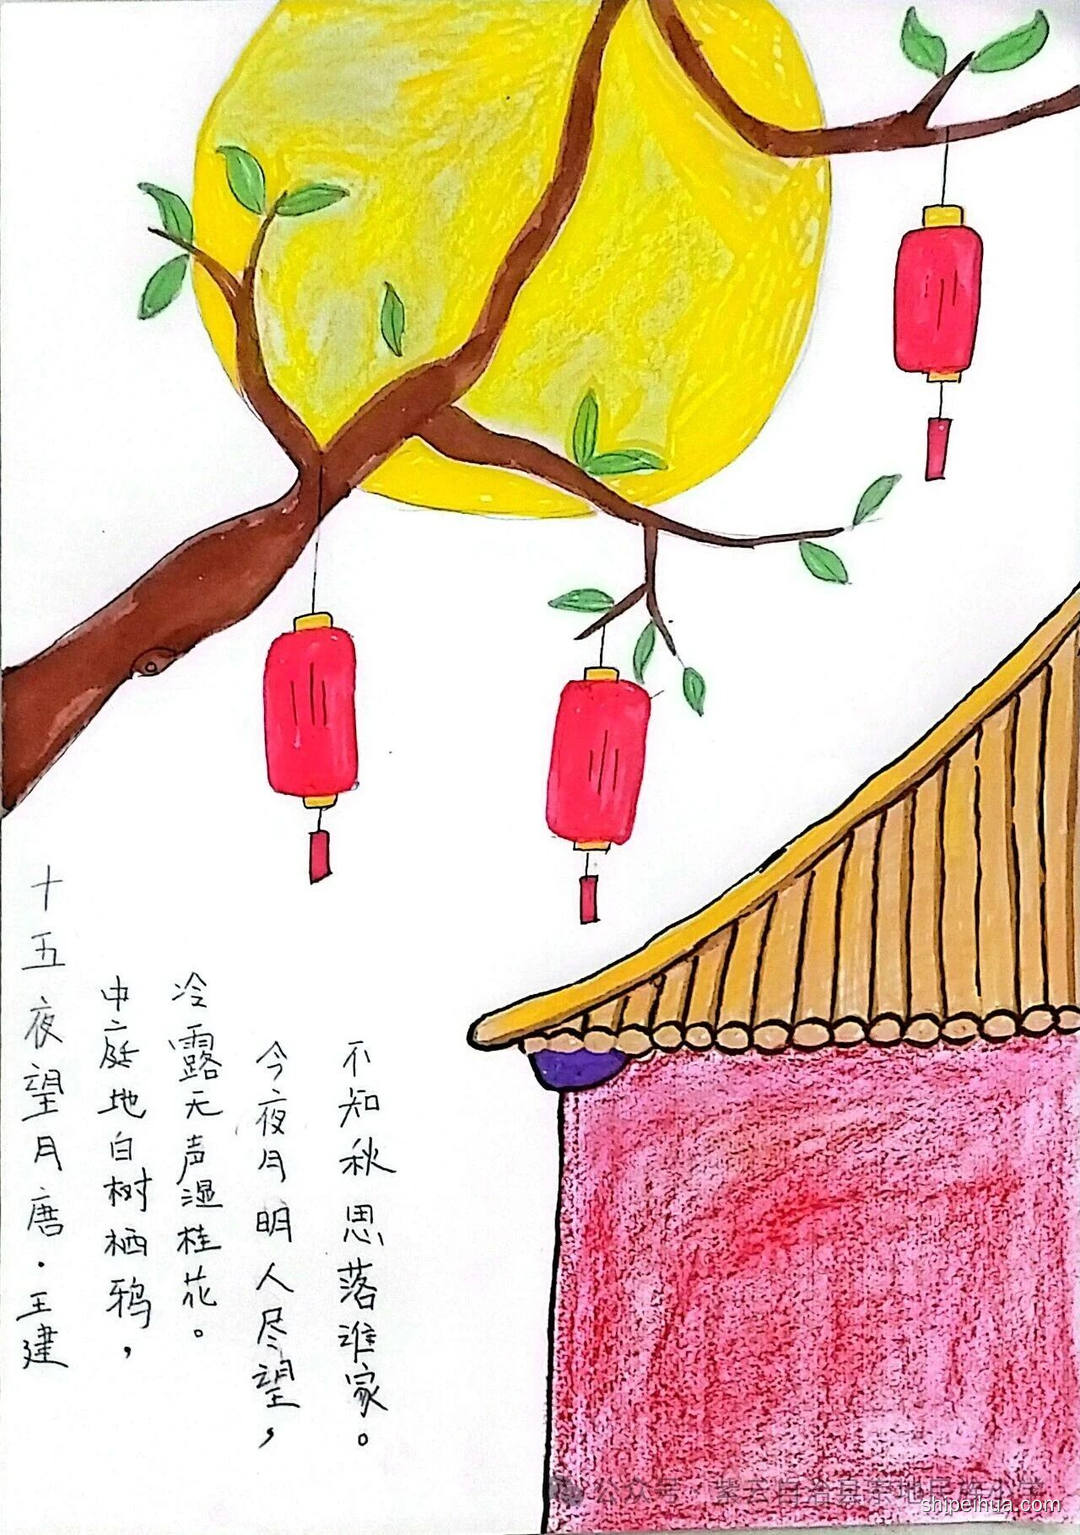 十五夜望月唐·王建
中庭地白树栖鸦，
冷露无声湿桂花。
今夜月明人尽望，
不知秋思落谁家。
公众号·紫云自治县宗地民族小学
shipeihua.com